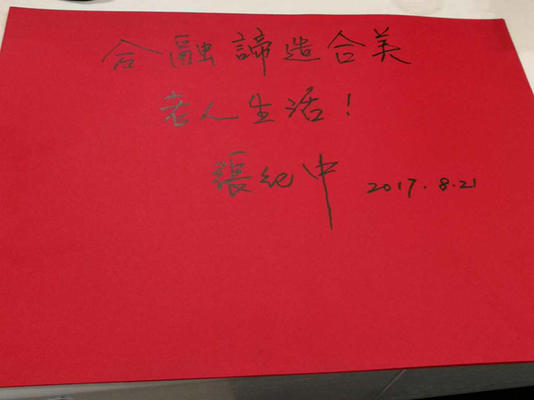 合融諦造合美
老人生活！
張紀中 2017.8.21